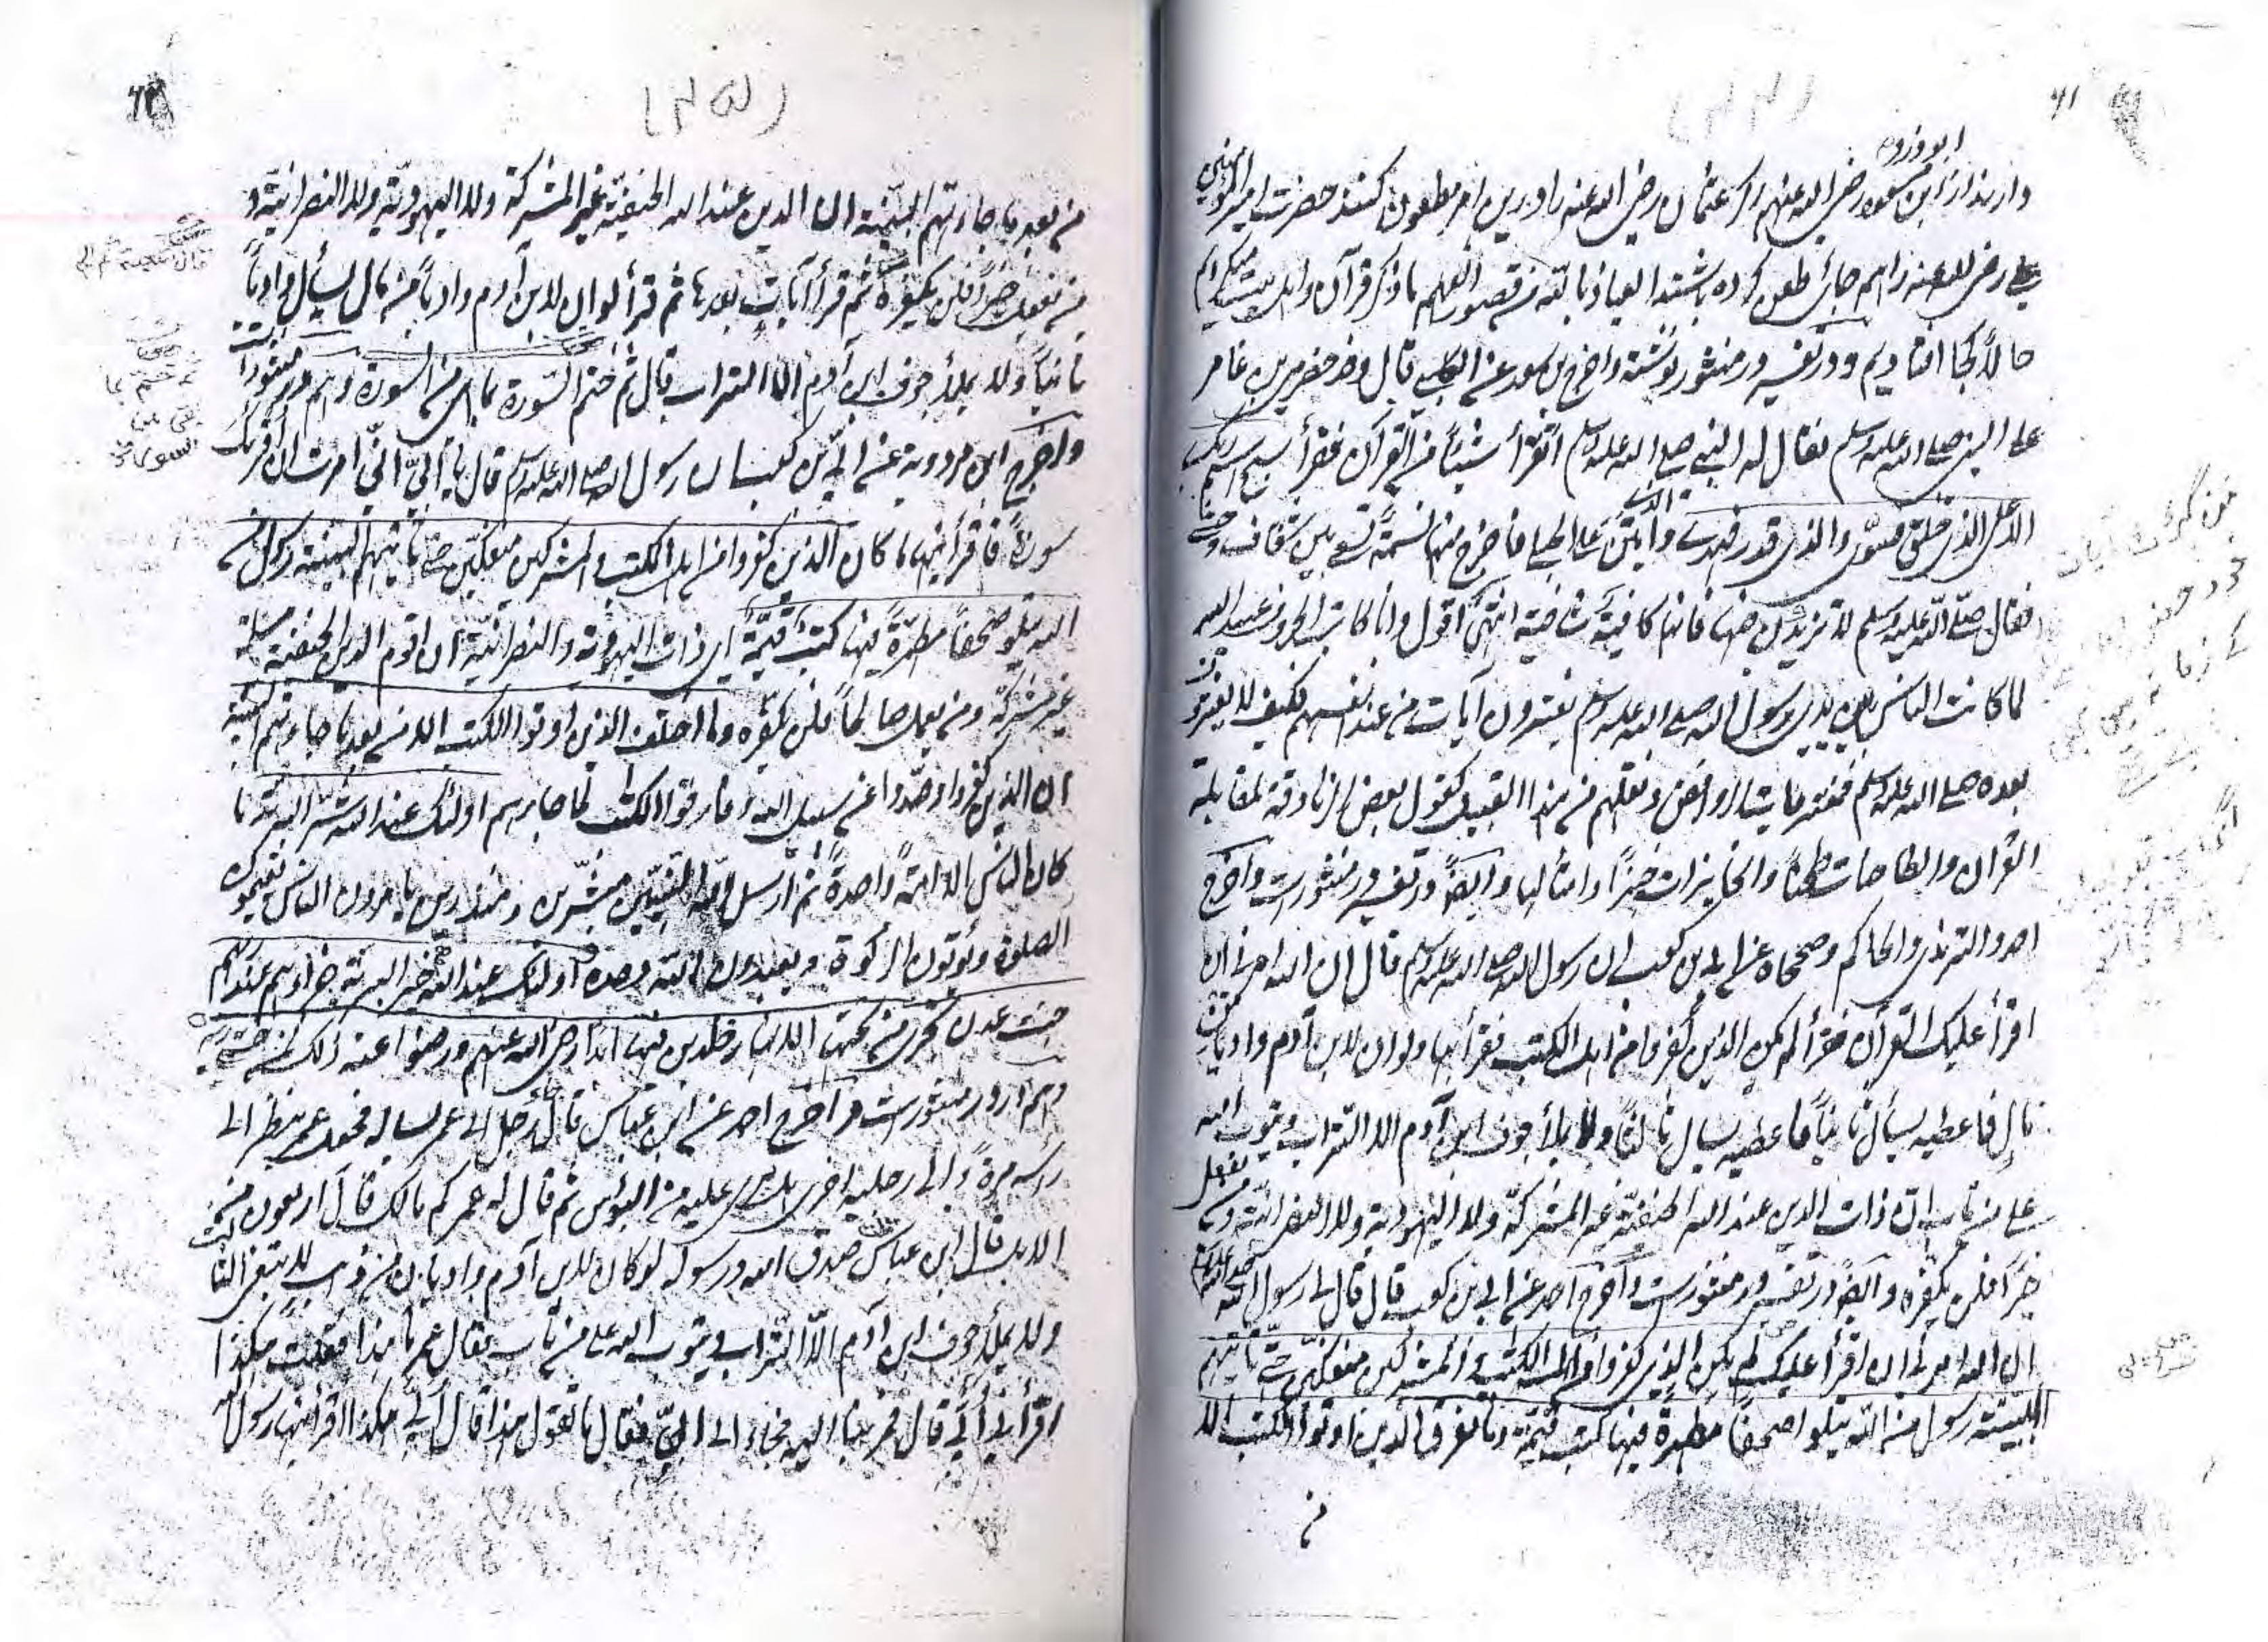 ابو ذر و
و ابن مسعود رضی الله عنهم اگر عثمان رضی الله عنه را درین امر مطعون کنند حضرت امیر المؤمنین
علی رضی الله عنه را هم جای طعن کرده باشند العیاذ بالله من قصور الفهم ما ذکر قرآن و اهل بیت
حالا کجا افتادیم و در تفسیر در منثور نوشته واخرج بن سعد عن الکلبی قال وفد حضرمی بن عامر
علی النبی صلی الله علیه وسلم فقال له النبی صلی الله علیه وسلم اتقرأ شیئاً من القرآن فقرأ سبح اسم ربک
الاعلی الذی خلق فسوی والذی قدر فهدی والذی امتن علی الحبلی فاخرج منها نسمة تسعی بین شغاف وحشی
فقال صلی الله علیه وسلم لا تزیدن فیها فانها کافیة شافیة انتهی اقول وانا کاتب الحروف عبد الله
لما کانت الناس بین یدی رسول الله صلی الله علیه وسلم یفترون آیات من عند انفسهم فکیف لا یفترون
بعده صلی الله علیه وسلم فمفتریات الروافض ونقلهم من هذا القبیل کقول بعض الزنادقة لمقابلة
القرآن والطاحنات طحناً والخابزات خبزاً وامثالها وایضاً در تفسیر در منثورست واخرج
احمد والترمذی والحاکم وصححاه عن ابی بن کعب ان رسول الله صلی الله علیه وسلم قال ان الله امرنی ان
اقرأ علیک القرآن فقرأ لم یکن الذین کفروا من اهل الکتب فقرأ فیها ولو ان لابن آدم وادیا من
مال فاعطیه یسأل ثانیاً فاعطیه یسال ثالثاً ولا یملأ جوف ابن آدم الا التراب ویتوب الله
علی من تاب ان ذات الدین عند الله الحنیفیة غیر المشرکة ولا الیهودیة ولا النصرانیة ومن یفعل
خیراً فلن یکفره وایضاً در تفسیر در منثورست واخرج احمد عن ابی بن کعب قال قال لی رسول الله صلی الله علیه وسلم
ان الله امرنی ان اقرأ علیک لم یکن الذین کفروا من اهل الکتب والمشرکین منفکین حتی تأتیهم
البینة رسول من الله یتلوا صحفاً مطهرة فیها کتب قیمة وما تفرق الذین اوتوا الکتب الا
من
(۲۵)
من بعد ما جاءتهم البینة ان الدین عند الله الحنیفیة غیر المشرکة ولا الیهودیة ولا النصرانیة و
من یفعل خیراً فلن یکفره ثم قرأ آیات بعدها ثم قرأ لو ان لابن آدم وادیاً من مال لسأل وادیاً
ثانیاً ولا یملأ جوف ابن آدم الا التراب قال ثم ختم السورة بما بقی من السورة وهم در منثور است
واخرج ابن مردویة عن ابی بن کعب ان رسول الله صلی الله علیه وسلم قال یا ابی انی امرت ان اقرئک
سورة فاقرأنیها ما کان الذین کفروا من اهل الکتب والمشرکین منفکین حتی تأتیهم البینة رسول من
الله یتلو صحفاً مطهرة فیها کتب قیمة ای ذات الیهودیة والنصرانیة ان اقوم الدین الحنیفیة مسلمة
غیر مشرکة ومن یعمل صالحاً فلن یکفره وما اختلف الذین اوتوا الکتب الا من بعد ما جاءتهم البینة
ان الذین کفروا وصدوا عن سبیل الله وفارقوا الکتب لما جاءهم اولئک عند الله شر البریة ما
کان الناس الا امة واحدة ثم ارسل الله النبیین مبشرین ومنذرین یامرون الناس یقیمون
الصلوة ویؤتون الزکوة ویعبدون الله وحده اولئک عند الله خیر البریة جزاؤهم عند ربهم
جنت عدن تجری من تحتها الانهار خلدین فیها ابداً رضی الله عنهم ورضوا عنه ذلک لمن خشی ربه
وهم در در منثورست واخرج احمد عن ابن عباس قال جاء رجل الی عمر یساله فجعل عمر ینظر الی
رأسه مرة والی رجلیه اخری هل یری علیه من البؤس ثم قال له عمر کم مالک قال اربعون من
الابل قال ابن عباس قلت صدق الله ورسوله لو کان لابن آدم وادیان من ذهب لابتغی الثالث
ولا یملأ جوف ابن آدم الا التراب ویتوب الله علی من تاب فقال عمر ما هذا فقلت هکذا
اقرأنی ابی قال فمر بنا الیه فجاء الی ابی فقال ما تقول هذا قال ابی هکذا اقرأنیها رسول الله